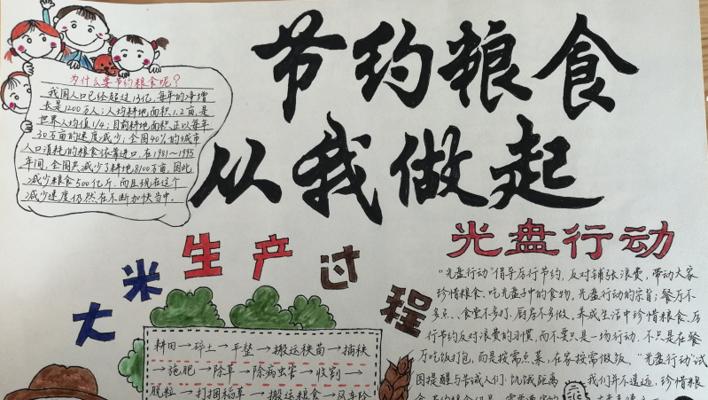 节约粮食
从我做起
为什么要节约粮食呢?
我国人口已经超过13亿,每年的净增
长是1200万人;人均耕地面积1.2亩,是
世界人均值1/4;目前耕地面积正以每年
30万亩的速度减少;全国40%的城市
人口消耗的粮食依靠进口。在1981~1995
年间,全国共减少了耕地8100万亩,因此
减少粮食500亿斤,而且现在这个
减少速度仍然在不断加快当中。
大米生产过程
耕田→砂土→平垫→搬运秧苗→插秧
→施肥→除草→除病虫害→收割→
脱粒→打捆稻草→搬运粮食→风车除
光盘行动
“光盘行动”倡导厉行节约,反对铺张浪费,带动大家
珍惜粮食、吃光盘子中的食物。光盘行动的宗旨:餐厅不
多点、食堂不多打、厨房不多做。养成生活中珍惜粮食、厉
行节约反对浪费的习惯,而不要只是一场行动。不只是在餐
厅吃饭打包,而是按需点菜,在家按需做饭。“光盘行动”试
图提醒与告诫人们:饥饿距离我们并不遥远,珍惜粮